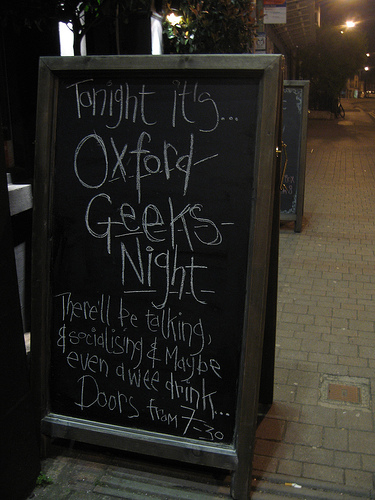 Tonight it's...
Oxford
Geeks
Night
There'll be talking,
& socialising & Maybe
even a wee drink...
Doors from 7-30